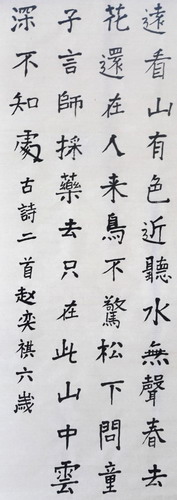 遠看山有色近聽水無聲春去
花還在人来鳥不驚松下問童
子言師採藥去只在此山中雲
深不知處古詩二首赵奕祺六歲